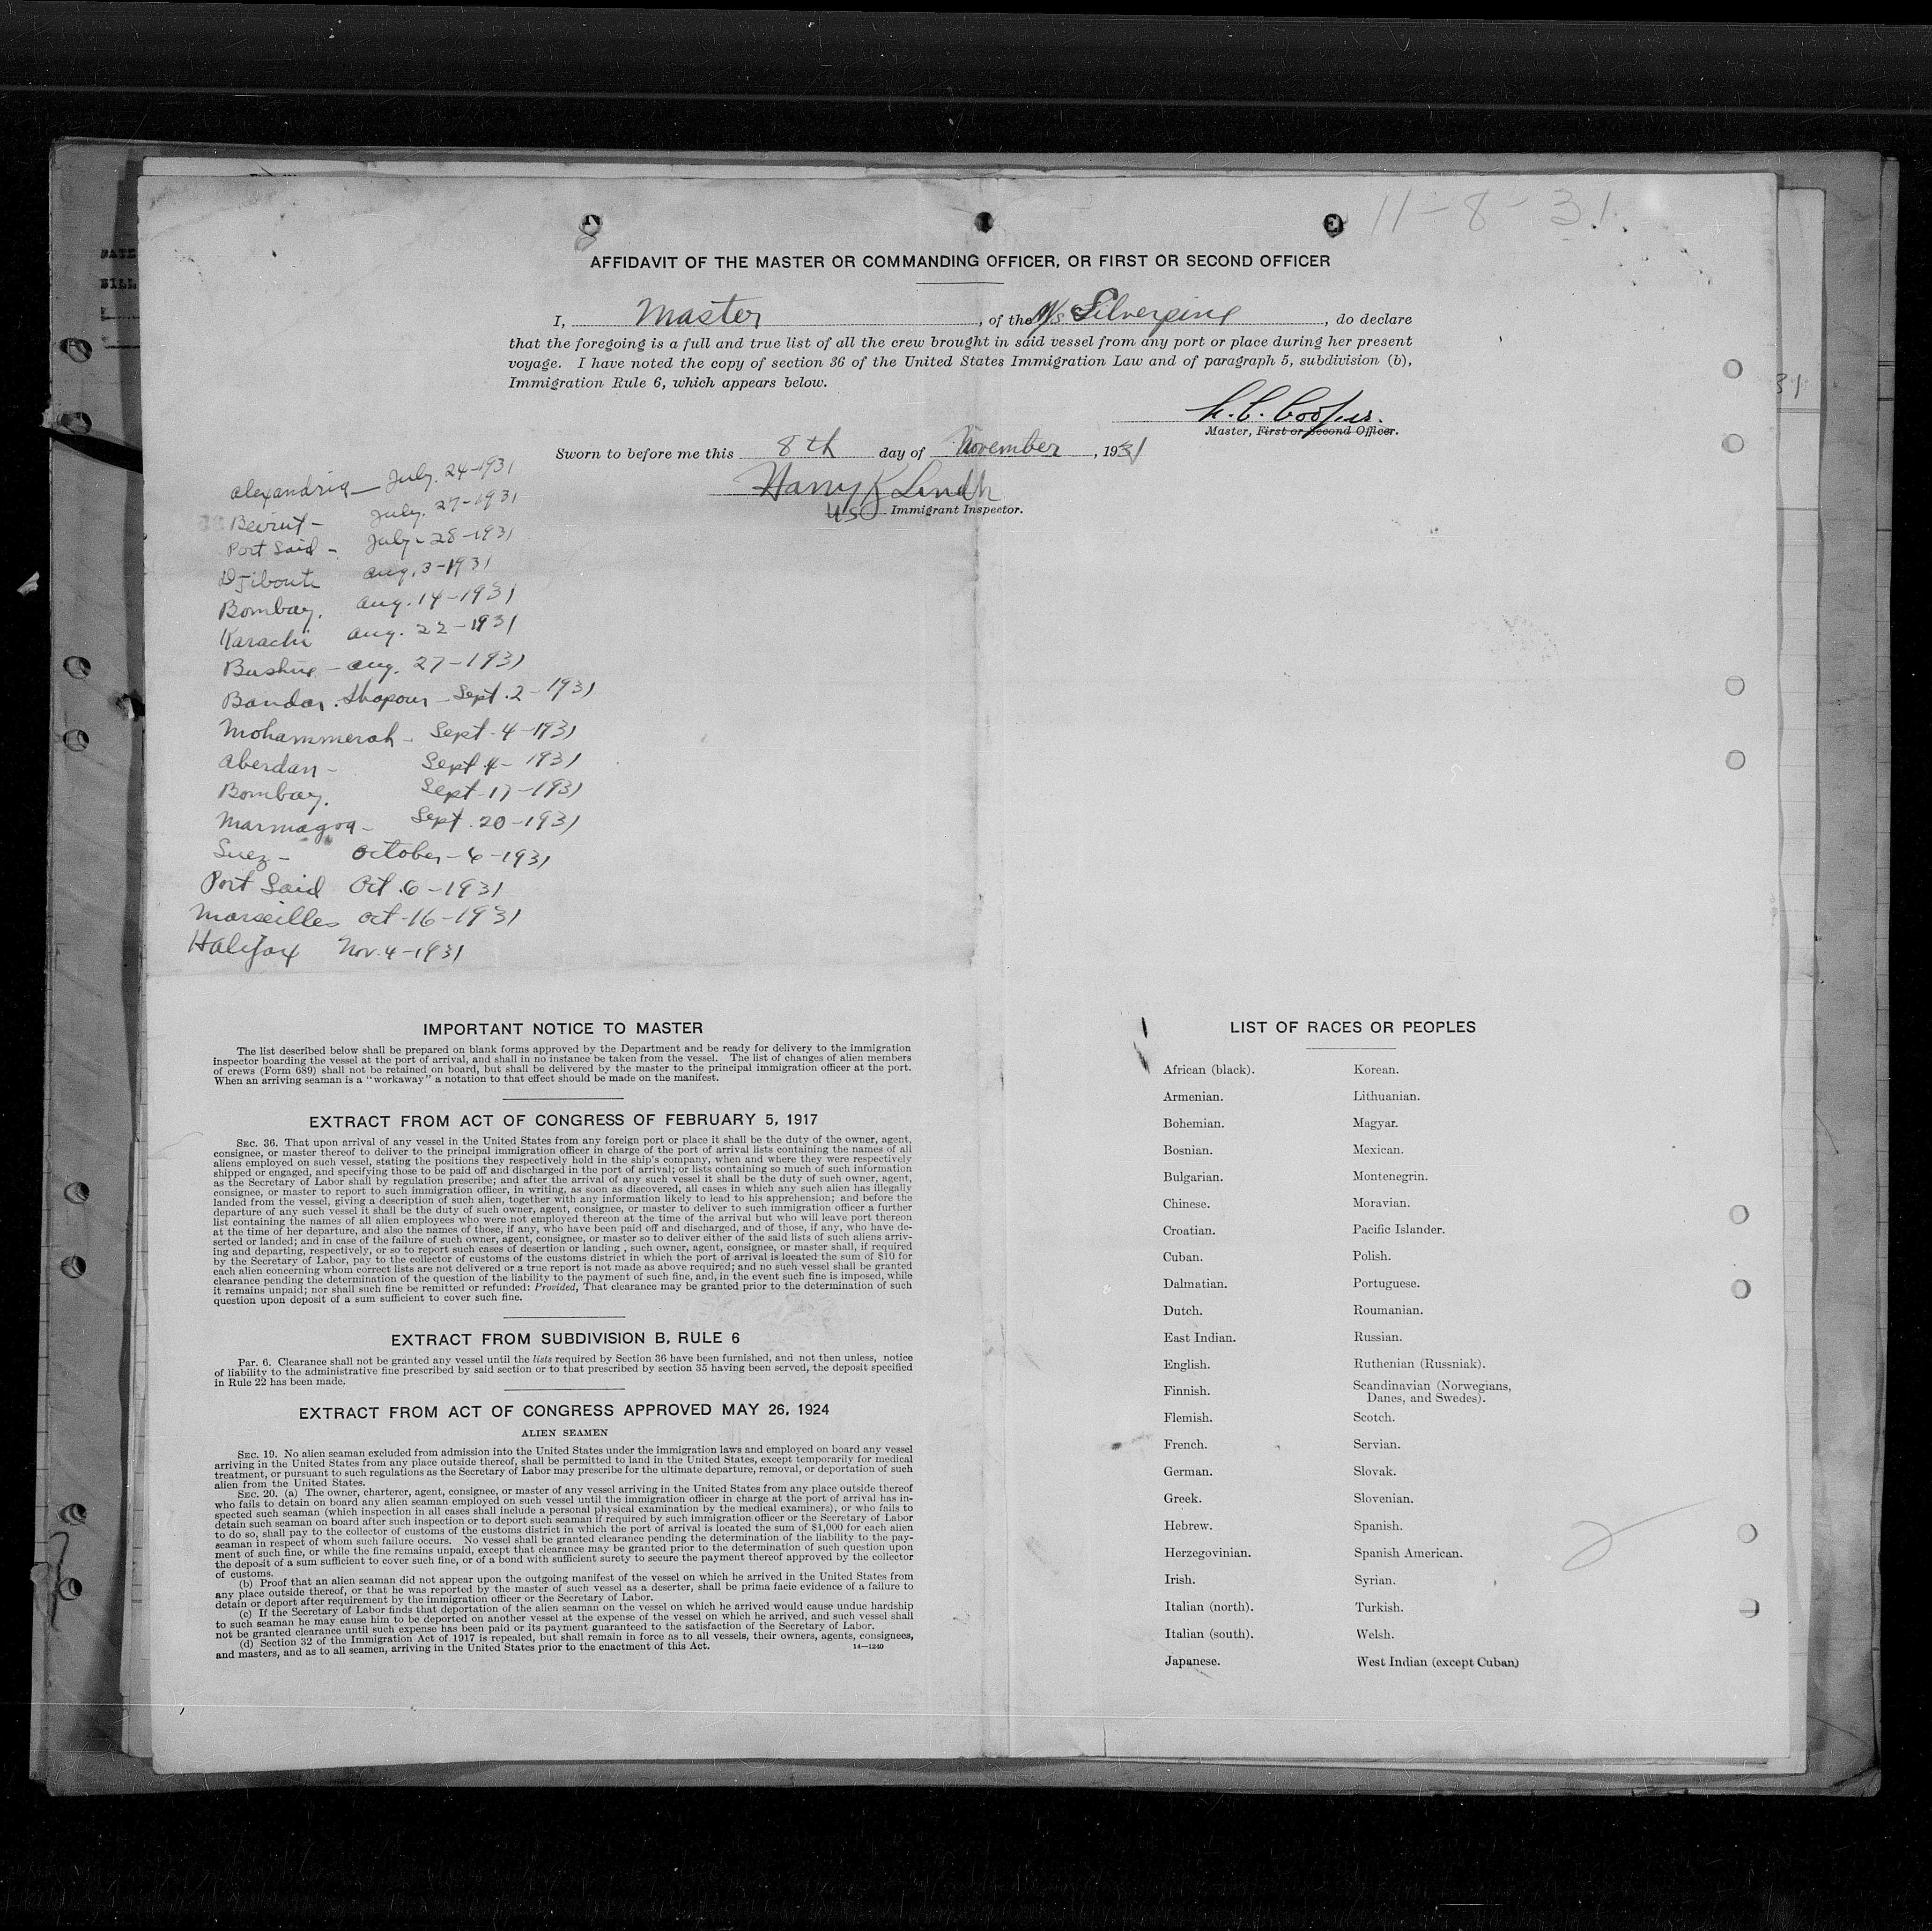 11-8-31
AFFIDAVIT OF THE MASTER OR COMMANDING OFFICER, OR FIRST OR SECOND OFFICER
I, Master, of the M/s Silverpine, do declare
that the foregoing is a full and true list of all the crew brought in said vessel from any port or place during her present
voyage. I have noted the copy of section 36 of the United States Immigration Law and of paragraph 5, subdivision (b),
Immigration Rule 6, which appears below.
Master, First or Second Officer.
Sworn to before me this 8th day of November, 1931
Harry K Lindh
US Immigrant Inspector.
Alexandria - July. 24-1931
Beirut - July. 27-1931
Port Said - July - 28-1931
Djibouti Aug. 3-1931
Bombay. Aug. 14-1931
Karachi Aug. 22-1931
Bushire - Aug. 27-1931
Bandar. Shapour - Sept. 2-1931
Mohammerah - Sept. 4-1931
Aberdan - Sept. 4- 1931
Bombay. Sept. 17-1931
Marmagoa - Sept. 20-1931
Suez - October - 6-1931
Port Said Oct. 6-1931
Marseilles Oct-16-1931
Halifax Nov. 4-1931
IMPORTANT NOTICE TO MASTER
The list described below shall be prepared on blank forms approved by the Department and be ready for delivery to the immigration
inspector boarding the vessel at the port of arrival, and shall in no instance be taken from the vessel. The list of changes of alien members
of crews (Form 689) shall not be retained on board, but shall be delivered by the master to the principal immigration officer at the port.
When an arriving seaman is a "workaway" a notation to that effect should be made on the manifest.
EXTRACT FROM ACT OF CONGRESS OF FEBRUARY 5, 1917
SEC. 36. That upon arrival of any vessel in the United States from any foreign port or place it shall be the duty of the owner, agent,
consignee, or master thereof to deliver to the principal immigration officer in charge of the port of arrival lists containing the names of all
aliens employed on such vessel, stating the positions they respectively hold in the ship's company, when and where they were respectively
shipped or engaged, and specifying those to be paid off and discharged in the port of arrival; or lists containing so much of such information
as the Secretary of Labor shall by regulation prescribe; and after the arrival of any such vessel it shall be the duty of such owner, agent,
consignee, or master to report to such immigration officer, in writing, as soon as discovered, all cases in which any such alien has illegally
landed from the vessel, giving a description of such alien, together with any information likely to lead to his apprehension; and before the
departure of any such vessel it shall be the duty of such owner, agent, consignee, or master to deliver to such immigration officer a further
list containing the names of all alien employees who were not employed thereon at the time of the arrival but who will leave port thereon
at the time of her departure, and also the names of those, if any, who have been paid off and discharged, and of those, if any, who have de-
serted or landed; and in case of the failure of such owner, agent, consignee, or master so to deliver either of the said lists of such aliens arriv-
ing and departing, respectively, or so to report such cases of desertion or landing , such owner, agent, consignee, or master shall, if required
by the Secretary of Labor, pay to the collector of customs of the customs district in which the port of arrival is located the sum of $10 for
each alien concerning whom correct lists are not delivered or a true report is not made as above required; and no such vessel shall be granted
clearance pending the determination of the question of the liability to the payment of such fine, and, in the event such fine is imposed, while
it remains unpaid; nor shall such fine be remitted or refunded: Provided, That clearance may be granted prior to the determination of such
question upon deposit of a sum sufficient to cover such fine.
EXTRACT FROM SUBDIVISION B, RULE 6
Par. 6. Clearance shall not be granted any vessel until the lists required by Section 36 have been furnished, and not then unless, notice
of liability to the administrative fine prescribed by said section or to that prescribed by section 35 having been served, the deposit specified
in Rule 22 has been made.
EXTRACT FROM ACT OF CONGRESS APPROVED MAY 26, 1924
ALIEN SEAMEN
SEC. 19. No alien seaman excluded from admission into the United States under the immigration laws and employed on board any vessel
arriving in the United States from any place outside thereof, shall be permitted to land in the United States, except temporarily for medical
treatment, or pursuant to such regulations as the Secretary of Labor may prescribe for the ultimate departure, removal, or deportation of such
alien from the United States.
SEC. 20. (a) The owner, charterer, agent, consignee, or master of any vessel arriving in the United States from any place outside thereof
who fails to detain on board any alien seaman employed on such vessel until the immigration officer in charge at the port of arrival has in-
spected such seaman (which inspection in all cases shall include a personal physical examination by the medical examiners), or who fails to
detain such seaman on board after such inspection or to deport such seaman if required by such immigration officer or the Secretary of Labor
to do so, shall pay to the collector of customs of the customs district in which the port of arrival is located the sum of $1,000 for each alien
seaman in respect of whom such failure occurs. No vessel shall be granted clearance pending the determination of the liability to the pay-
ment of such fine, or while the fine remains unpaid, except that clearance may be granted prior to the determination of such question upon
the deposit of a sum sufficient to cover such fine, or of a bond with sufficient surety to secure the payment thereof approved by the collector
of customs.
(b) Proof that an alien seaman did not appear upon the outgoing manifest of the vessel on which he arrived in the United States from
any place outside thereof, or that he was reported by the master of such vessel as a deserter, shall be prima facie evidence of a failure to
detain or deport after requirement by the immigration officer or the Secretary of Labor.
(c) If the Secretary of Labor finds that deportation of the alien seaman on the vessel on which he arrived would cause undue hardship
to such seaman he may cause him to be deported on another vessel at the expense of the vessel on which he arrived, and such vessel shall
not be granted clearance until such expense has been paid or its payment guaranteed to the satisfaction of the Secretary of Labor.
(d) Section 32 of the Immigration Act of 1917 is repealed, but shall remain in force as to all vessels, their owners, agents, consignees,
and masters, and as to all seamen, arriving in the United States prior to the enactment of this Act. 14—1240
LIST OF RACES OR PEOPLES
African (black). Korean.
Armenian. Lithuanian.
Bohemian. Magyar.
Bosnian. Mexican.
Bulgarian. Montenegrin.
Chinese. Moravian.
Croatian. Pacific Islander.
Cuban. Polish.
Dalmatian. Portuguese.
Dutch. Roumanian.
East Indian. Russian.
English. Ruthenian (Russniak).
Finnish. Scandinavian (Norwegians,
Danes, and Swedes).
Flemish. Scotch.
French. Servian.
German. Slovak.
Greek. Slovenian.
Hebrew. Spanish.
Herzegovinian. Spanish American.
Irish. Syrian.
Italian (north). Turkish.
Italian (south). Welsh.
Japanese. West Indian (except Cuban)